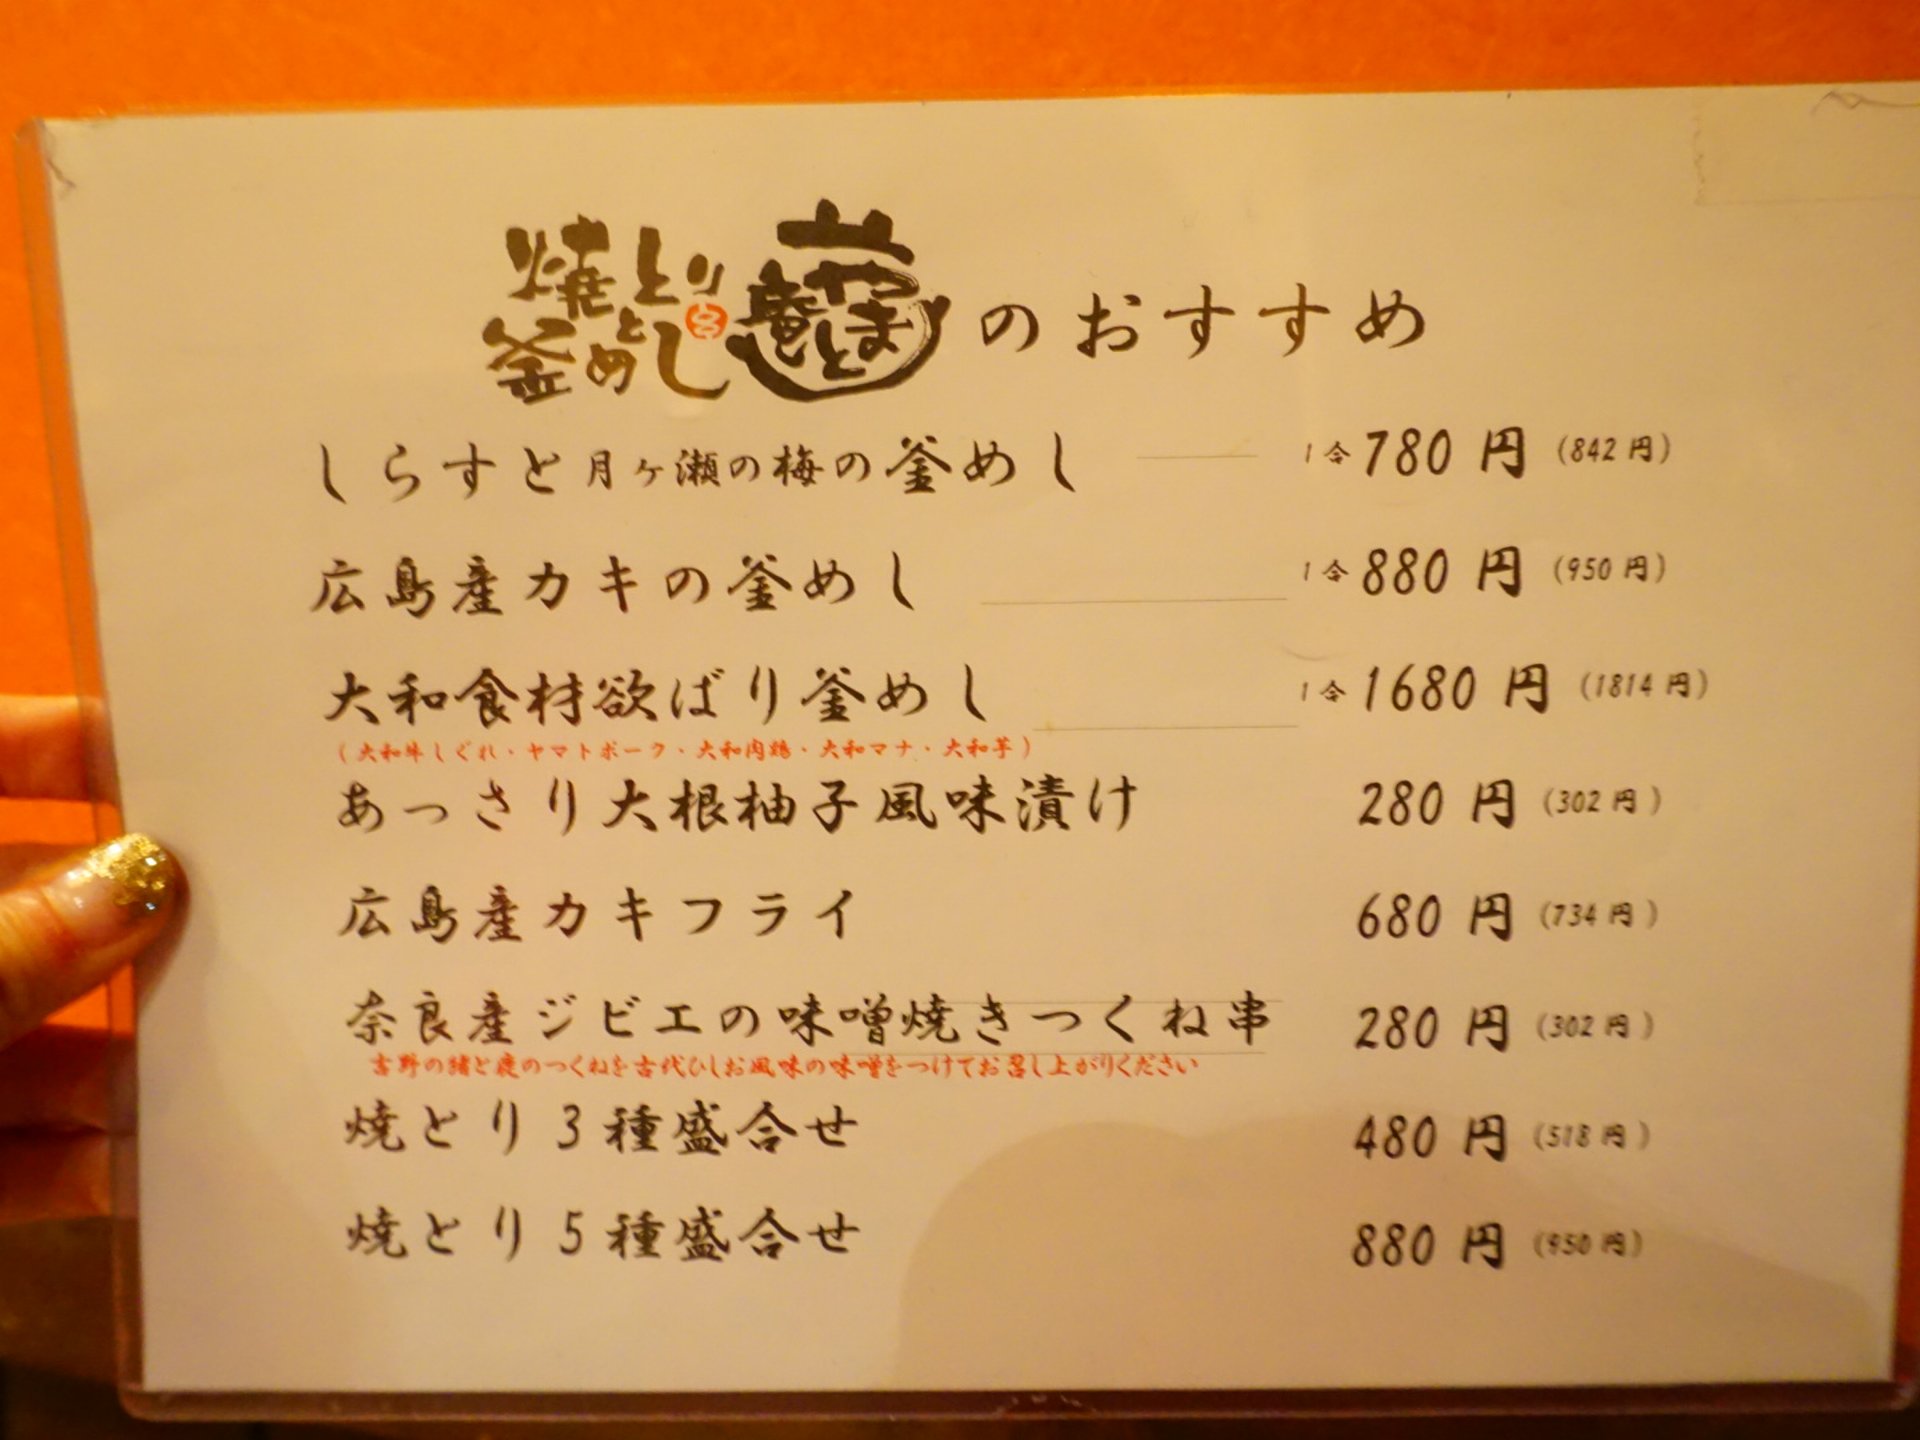 焼とりと釜めし やまと庵 のおすすめ
しらすと月ヶ瀬の梅の釜めし 1合 780円 (842円)
広島産カキの釜めし 1合 880円 (950円)
大和食材欲ばり釜めし 1合 1680円 (1814円)
(大和牛しぐれ・ヤマトポーク・大和肉鶏・大和マナ・大和芋)
あっさり大根柚子風味漬け 280円 (302円)
広島産カキフライ 680円 (734円)
奈良産ジビエの味噌焼きつくね串 280円 (302円)
吉野の猪と鹿のつくねを古代ひしお風味の味噌をつけてお召し上がりください
焼とり3種盛合せ 480円 (518円)
焼とり5種盛合せ 880円 (950円)